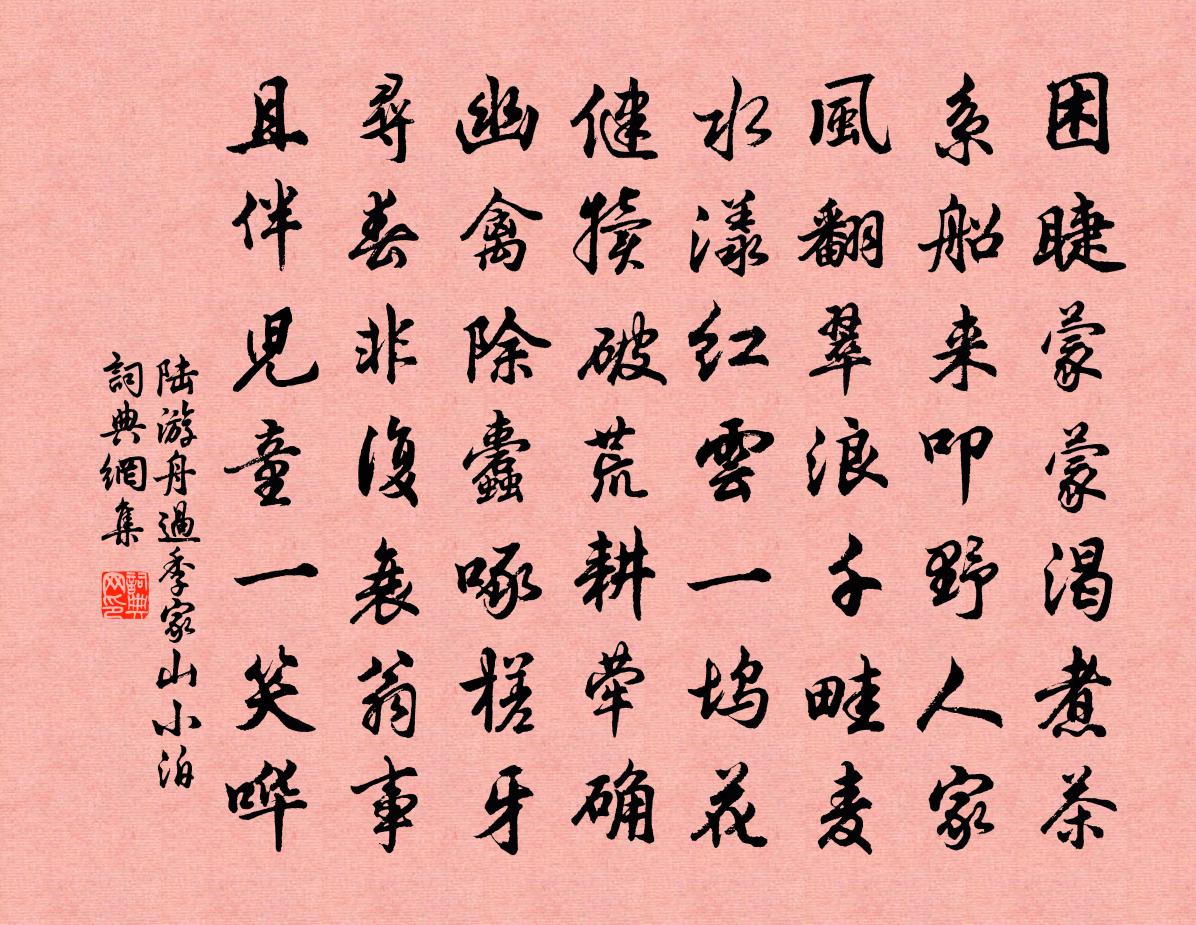 困睫蒙蒙渴煮茶
系船来叩野人家
風翻翠浪千畦麦
水漾红雲一坞花
健犊破荒耕荦确
幽禽除蠹啄槎牙
尋春非復衰翁事
且伴児童一笑哗
陆游舟過季家山小泊
詞典網集
詞典网印